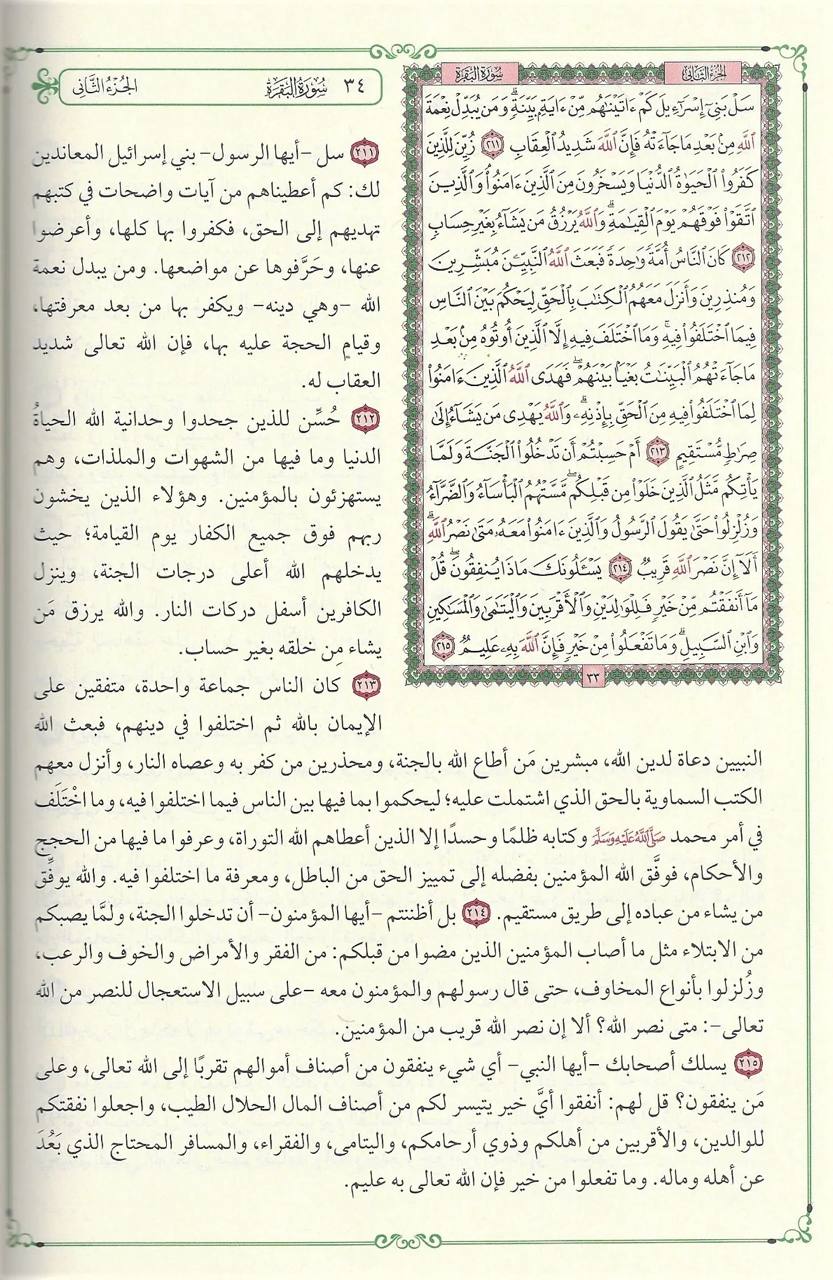 ٣٤ سُورَةُ البَقَرَةِ الجُزْءُ الثَّانِي
الجزء الثاني سورة البقرة
سَلْ بَنِيٓ إِسْرَٰٓءِيلَ كَمْ ءَاتَيْنَٰهُم مِّنْ ءَايَةِۭ بَيِّنَةٖۗ وَمَن يُبَدِّلْ نِعْمَةَ
ٱللَّهِ مِنۢ بَعْدِ مَا جَآءَتْهُ فَإِنَّ ٱللَّهَ شَدِيدُ ٱلْعِقَابِ ٢١١ زُيِّنَ لِلَّذِينَ
كَفَرُواْ ٱلْحَيَوٰةُ ٱلدُّنْيَا وَيَسْخَرُونَ مِنَ ٱلَّذِينَ ءَامَنُواْۘ وَٱلَّذِينَ
ٱتَّقَوْاْ فَوْقَهُمْ يَوْمَ ٱلْقِيَٰمَةِۗ وَٱللَّهُ يَرْزُقُ مَن يَشَآءُ بِغَيْرِ حِسَابٖ
٢١٢ كَانَ ٱلنَّاسُ أُمَّةٗ وَٰحِدَةٗ فَبَعَثَ ٱللَّهُ ٱلنَّبِيِّـۧنَ مُبَشِّرِينَ
وَمُنذِرِينَ وَأَنزَلَ مَعَهُمُ ٱلْكِتَٰبَ بِٱلْحَقِّ لِيَحْكُمَ بَيْنَ ٱلنَّاسِ
فِيمَا ٱخْتَلَفُواْ فِيهِۚ وَمَا ٱخْتَلَفَ فِيهِ إِلَّا ٱلَّذِينَ أُوتُوهُ مِنۢ بَعْدِ
مَا جَآءَتْهُمُ ٱلْبَيِّنَٰتُ بَغْيَۢا بَيْنَهُمْۖ فَهَدَى ٱللَّهُ ٱلَّذِينَ ءَامَنُواْ
لِمَا ٱخْتَلَفُواْ فِيهِ مِنَ ٱلْحَقِّ بِإِذْنِهِۦۗ وَٱللَّهُ يَهْدِي مَن يَشَآءُ إِلَىٰ
صِرَٰطٖ مُّسْتَقِيمٍ ٢١٣ أَمْ حَسِبْتُمْ أَن تَدْخُلُواْ ٱلْجَنَّةَ وَلَمَّا
يَأْتِكُم مَّثَلُ ٱلَّذِينَ خَلَوْاْ مِن قَبْلِكُمۖ مَّسَّتْهُمُ ٱلْبَأْسَآءُ وَٱلضَّرَّآءُ
وَزُلْزِلُواْ حَتَّىٰ يَقُولَ ٱلرَّسُولُ وَٱلَّذِينَ ءَامَنُواْ مَعَهُۥ مَتَىٰ نَصْرُ ٱللَّهِۗ
أَلَآ إِنَّ نَصْرَ ٱللَّهِ قَرِيبٞ ٢١٤ يَسْـَٔلُونَكَ مَاذَا يُنفِقُونَۖ قُلْ
مَآ أَنفَقْتُم مِّنْ خَيْرٖ فَلِلْوَٰلِدَيْنِ وَٱلْأَقْرَبِينَ وَٱلْيَتَٰمَىٰ وَٱلْمَسَٰكِينِ
وَٱبْنِ ٱلسَّبِيلِۗ وَمَا تَفْعَلُواْ مِنْ خَيْرٖ فَإِنَّ ٱللَّهَ بِهِۦ عَلِيمٞ ٢١٥
٣٣
٢١١ سل -أيها الرسول- بني إسرائيل المعاندين
لك: كم أعطيناهم من آيات واضحات في كتبهم
تهديهم إلى الحق، فكفروا بها كلها، وأعرضوا
عنها، وحَرَّفوها عن مواضعها. ومن يبدل نعمة
الله -وهي دينه- ويكفر بها من بعد معرفتها،
وقيامِ الحجة عليه بها، فإن الله تعالى شديد
العقاب له.
٢١٢ حُسِّن للذين جحدوا وحدانية الله الحياةُ
الدنيا وما فيها من الشهوات والملذات، وهم
يستهزئون بالمؤمنين. وهؤلاء الذين يخشون
ربهم فوق جميع الكفار يوم القيامة؛ حيث
يدخلهم الله أعلى درجات الجنة، وينزل
الكافرين أسفل دركات النار. والله يرزق مَن
يشاء مِن خلقه بغير حساب.
٢١٣ كان الناس جماعة واحدة، متفقين على
الإيمان بالله ثم اختلفوا في دينهم، فبعث الله
النبيين دعاة لدين الله، مبشرين مَن أطاع الله بالجنة، ومحذرين من كفر به وعصاه النار، وأنزل معهم
الكتب السماوية بالحق الذي اشتملت عليه؛ ليحكموا بما فيها بين الناس فيما اختلفوا فيه، وما اخْتَلَف
في أمر محمد صَلَّى اللَّهُ عَلَيْهِ وَسَلَّمَ وكتابه ظلمًا وحسدًا إلا الذين أعطاهم الله التوراة، وعرفوا ما فيها من الحجج
والأحكام، فوفَّق الله المؤمنين بفضله إلى تمييز الحق من الباطل، ومعرفة ما اختلفوا فيه. والله يوفِّق
من يشاء من عباده إلى طريق مستقيم. ٢١٤ بل أظننتم -أيها المؤمنون- أن تدخلوا الجنة، ولمَّا يصبكم
من الابتلاء مثل ما أصاب المؤمنين الذين مضوا من قبلكم: من الفقر والأمراض والخوف والرعب،
وزُلزلوا بأنواع المخاوف، حتى قال رسولهم والمؤمنون معه -على سبيل الاستعجال للنصر من الله
تعالى-: متى نصر الله؟ ألا إن نصر الله قريب من المؤمنين.
٢١٥ يسلك أصحابك -أيها النبي- أي شيء ينفقون من أصناف أموالهم تقربًا إلى الله تعالى، وعلى
مَن ينفقون؟ قل لهم: أنفقوا أيَّ خير يتيسر لكم من أصناف المال الحلال الطيب، واجعلوا نفقتكم
للوالدين، والأقربين من أهلكم وذوي أرحامكم، واليتامى، والفقراء، والمسافر المحتاج الذي بَعُدَ
عن أهله وماله. وما تفعلوا من خير فإن الله تعالى به عليم.